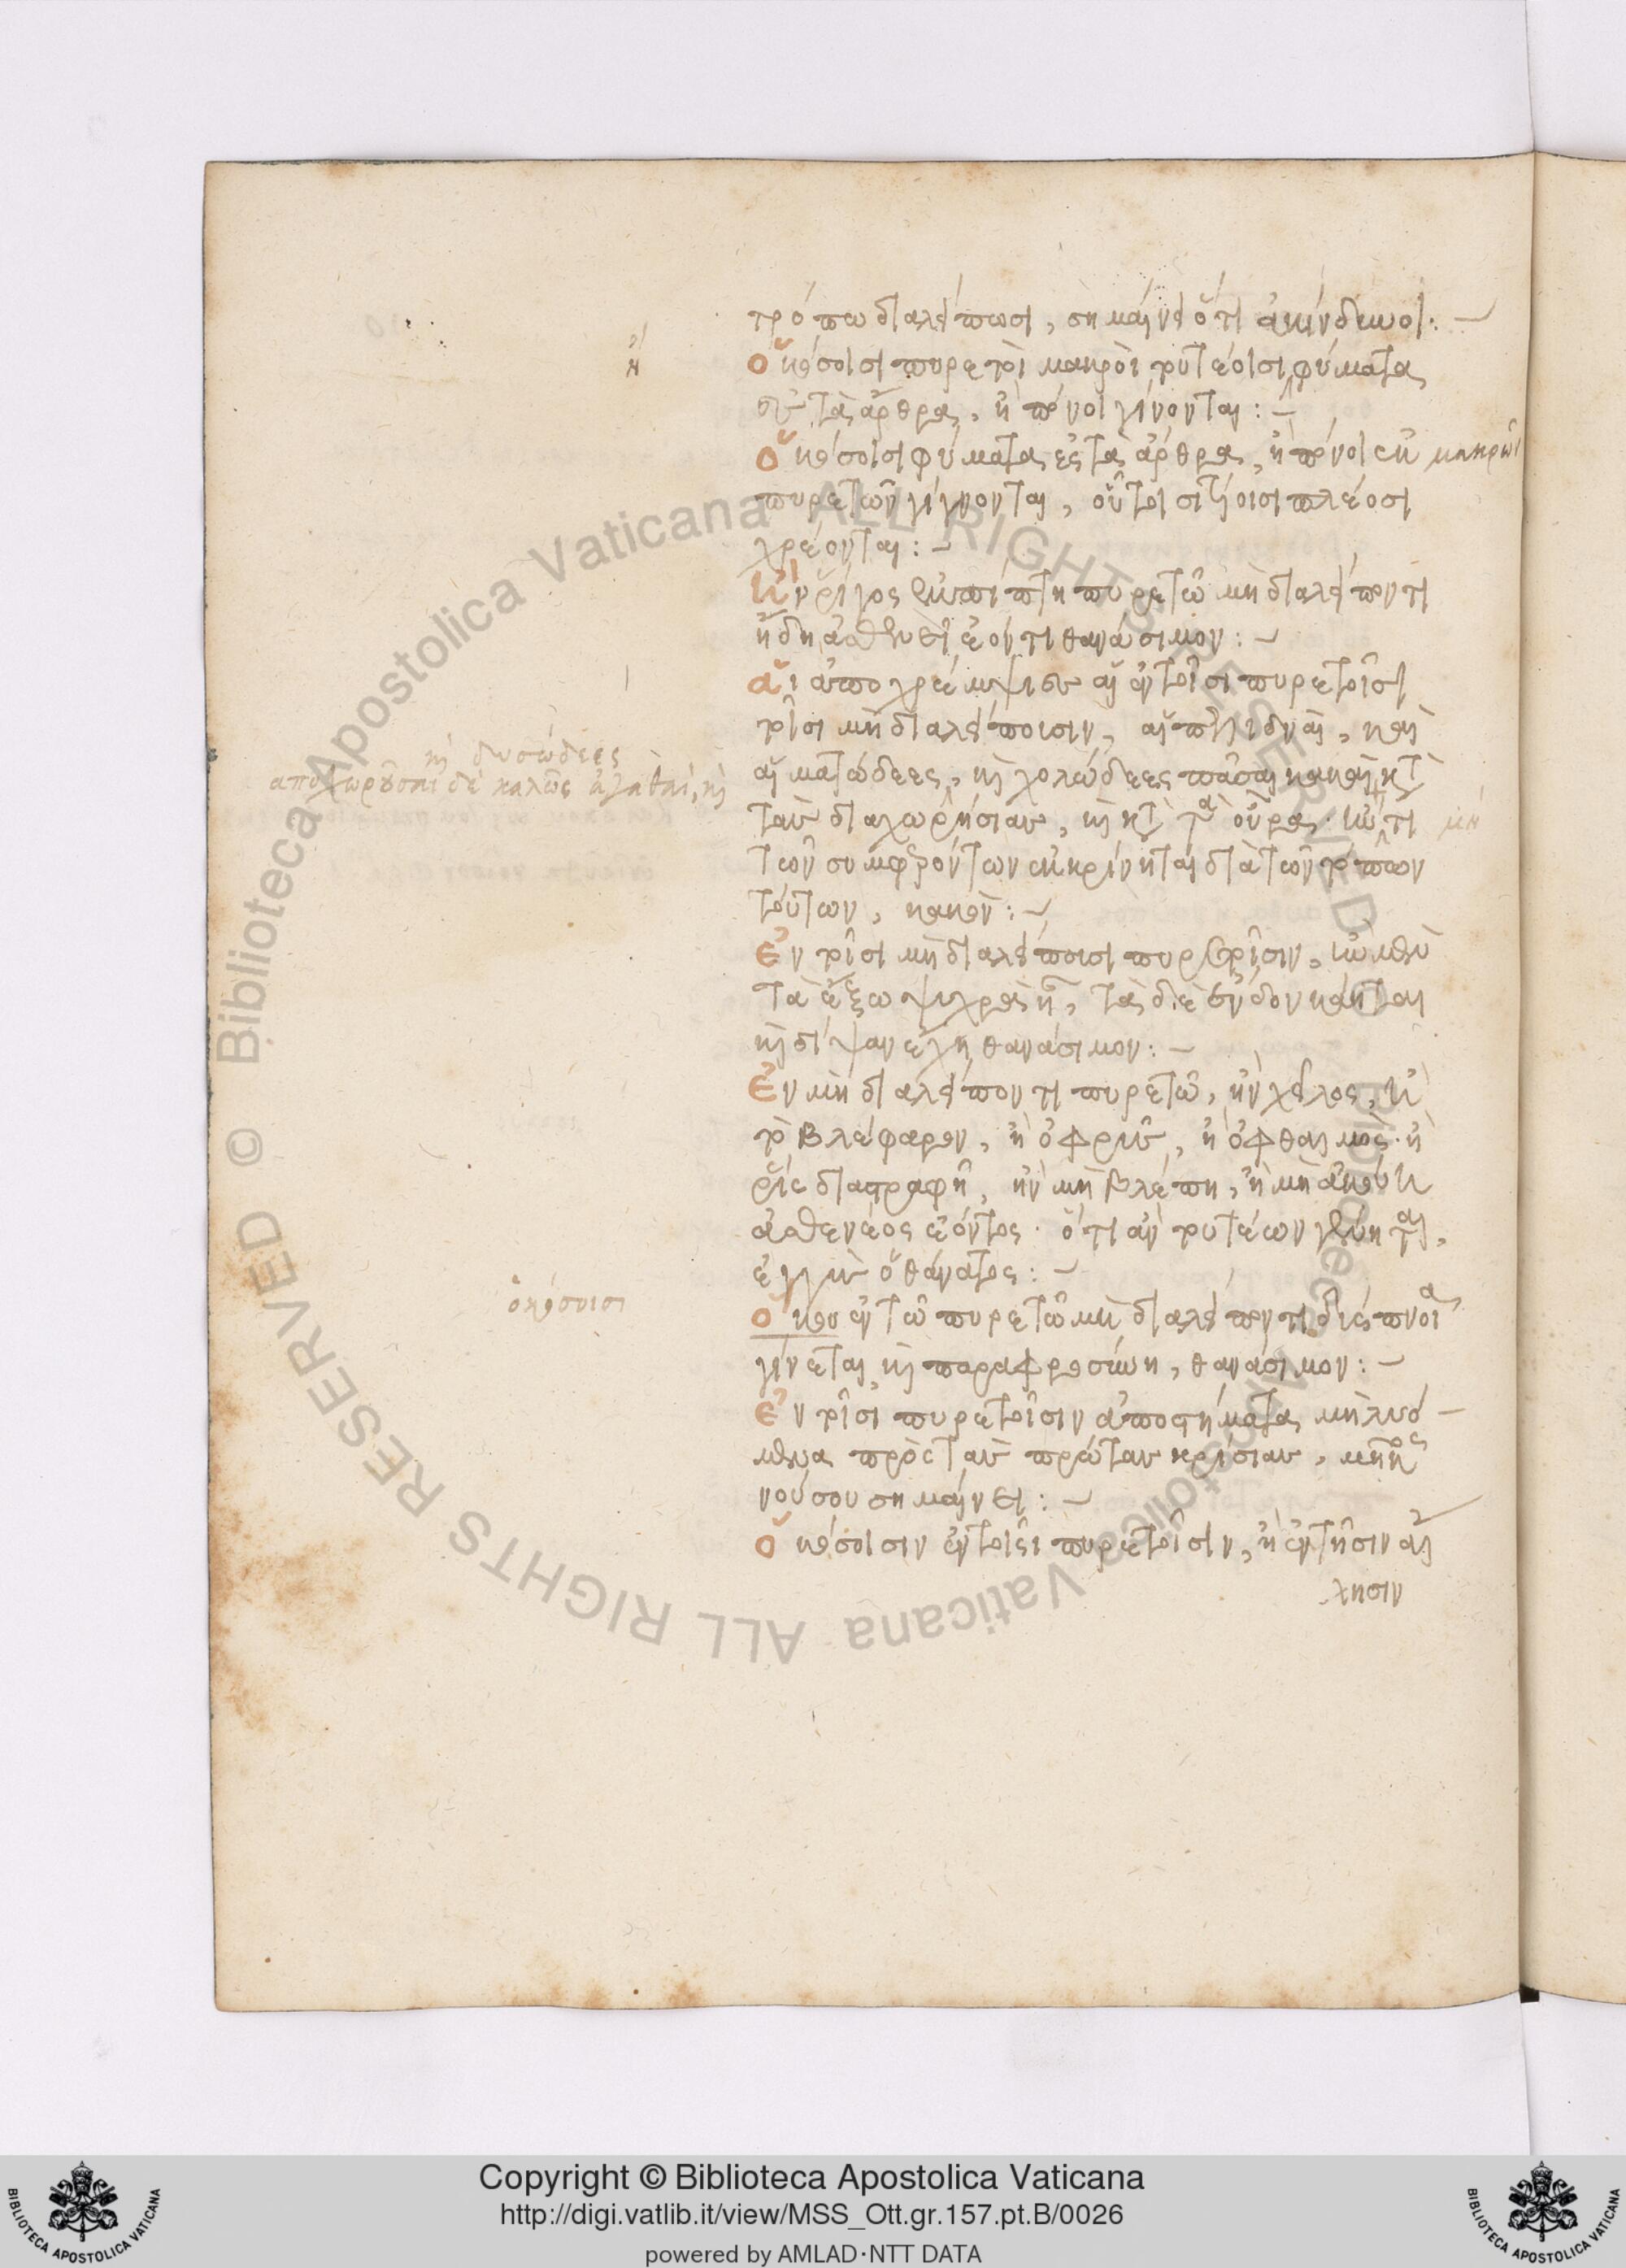 τρόπω διαλείπωσι, σημαίνει ὅτι ἀκίνδυνοι:
ἢ
Ὁκόσοισι πυρετοὶ μακροὶ τουτέοισι φύματα
ἐς τὰ ἄρθρα, ἢ πόνοι γίνονται:
Ὁκόσοισι φύματα ἐς τὰ ἄρθρα, ἢ πόνοι ἐκ μακρῶν
πυρετῶν γίγνονται, οὗτοι σιτίοισι πλέοσι
χρέονται:
Ἢν ῥῖγος ἐμπίπτη πυρετῶ μὴ διαλείποντι
ἤδη ἀσθενεῖ ἐόντι θανάσιμον:
Αἱ ἀποχρέμψιες αἱ ἐν τοῖσι πυρετοῖσι
τοῖσι μὴ διαλείπουσιν, αἱ πελιδναὶ, καὶ
αἱματώδεες, καὶ χολώδεες πᾶσαι κακαὶ κατὰ
καὶ δυσώδεες
ἀποχωροῦσαι δὲ καλῶς ἀγαθαί, καὶ
τὰν διαχώρησιαν, καὶ κατὰ τὰ οὖρα· ἢν τι
μὴ
τῶν συμφερόντων ἐκκρίνηται διὰ τῶν τόπων
τούτων, κακὸν:
Ἐν τοῖσι μὴ διαλείπουσι πυρετοῖσιν, ἢν μὲν
τὰ ἔξω ψυχρὰ ἦ, τὰ δὲ ἔνδον καίηται
καὶ δίψαν ἔχη θανάσιμον:
Ἐν μὴ διαλείποντι πυρετῶ, ἢν χεῖλος, ἢ
τὸ βλέφαρον, ἢ ὀφρὺς, ἢ ὀφθαλμὸς· ἢ
ῥὶς διαστραφῆ, ἢν μὴ βλέπη, ἢ μὴ ἀκούη
ἀσθενέος ἐόντος· ὅτι ἂν τουτέων γένηται,
ἐγγὺς ὁ θάνατος:
ὁκόσοισι
Ὅκου ἐν τῶ πυρετῶ μὴ διαλείποντι δύσπνοια
γίνεται καὶ παραφροσύνη, θανάσιμον:
Ἐν τοῖσι πυρετοῖσιν ἀποστήματα μὴ λυό-
μενα πρὸς τὰν πρώταν κρίσιαν, μῆκος
νούσου σημαίνει:
Ὁκόσοισιν ἐν τοῖσι πυρετοῖσιν, ἢ ἐν τῆσιν ἄλ
λησιν
Copyright © Biblioteca Apostolica Vaticana
http://digi.vatlib.it/view/MSS_Ott.gr.157.pt.B/0026
powered by AMLAD·NTT DATA
BIBLIOTECA APOSTOLICA VATICANA
BIBLIOTECA APOSTOLICA VATICANA
© Biblioteca Apostolica Vaticana ALL RIGHTS RESERVED
© Biblioteca Apostolica Vaticana ALL RIGHTS RESERVED